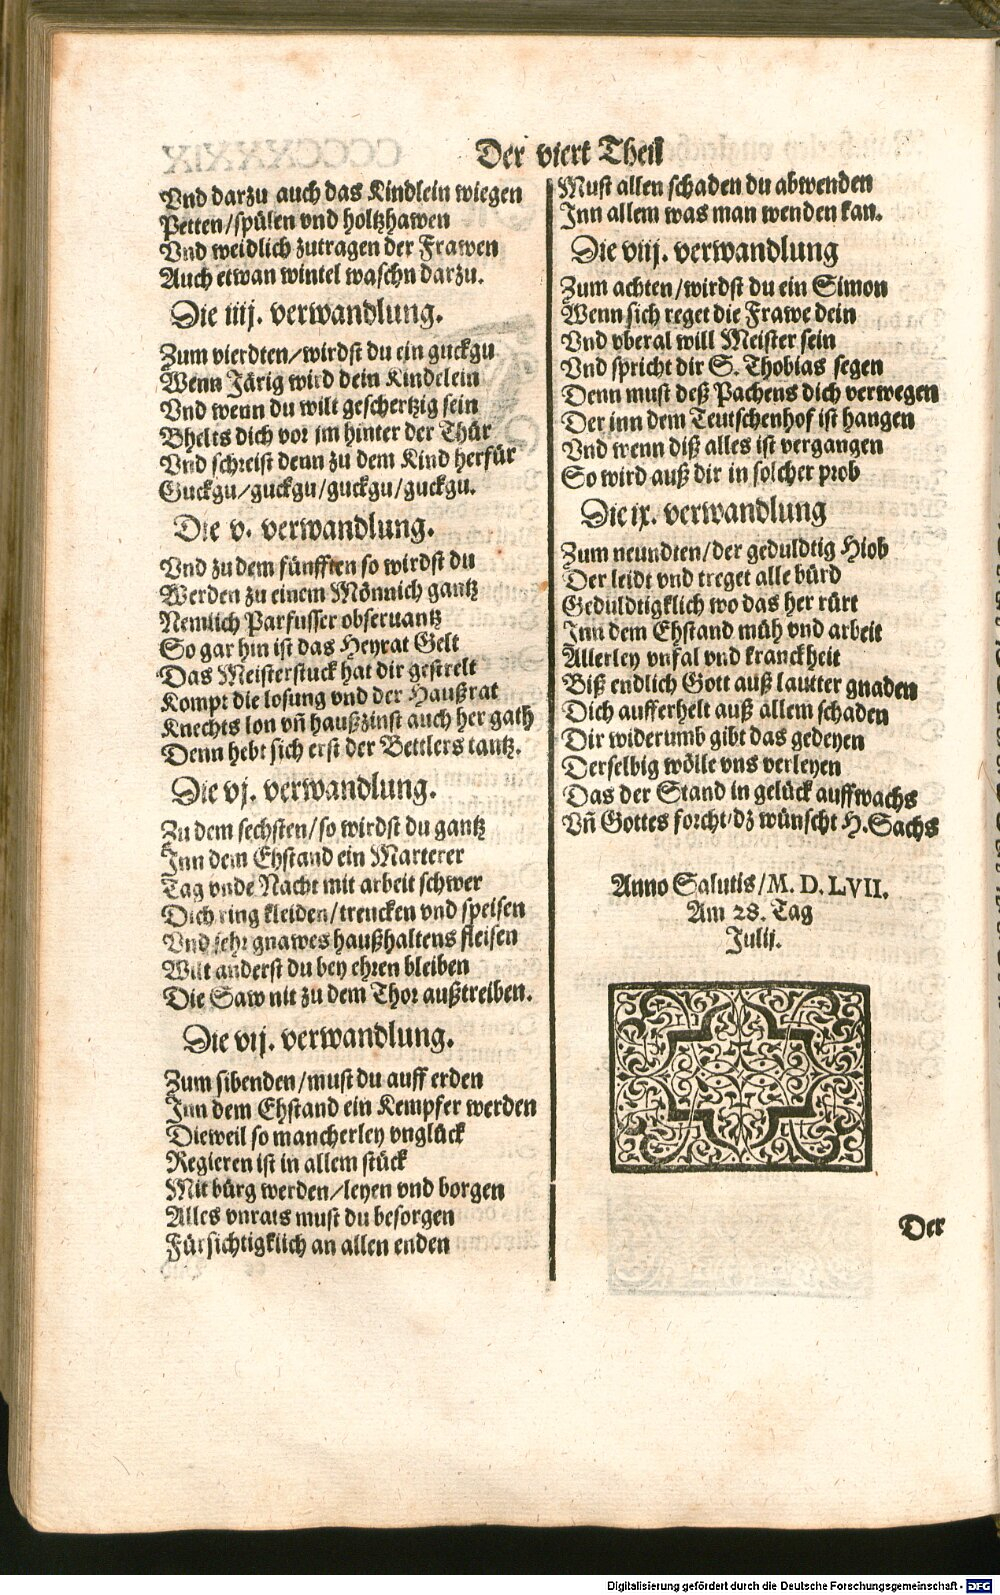 Der viert Theil
Vnd darzu auch das Kindlein wiegen
Petten/spülen vnd holtzhawen
Vnd weidlich zutragen der Frawen
Auch etwan wintel waschn darzu.
Die iiij. verwandlung.
Zum vierdten/wirdst du ein guckgu
Wenn Järig wird dein Kindelein
Vnd wenn du wilt geschertzig sein
Bhelts dich vor im hinter der Thür
Vnd schreist denn zu dem Kind herfür
Guckgu/guckgu/guckgu/guckgu.
Die v. verwandlung.
Vnd zu dem fünfften so wirdst du
Werden zu einem Mönnich gantz
Nemlich Parfusser obseruantz
So gar hin ist das Heyrat Gelt
Das Meisterstuck hat dir gestrelt
Kompt die losung vnd der Haußrat
Knechts lon vñ haußzinst auch her gath
Denn hebt sich erst der Bettlers tantz.
Die vj. verwandlung.
Zu dem sechsten/so wirdst du gantz
Inn dem Ehstand ein Marterer
Tag vnde Nacht mit arbeit schwer
Dich ring kleiden/trencken vnd speisen
Vnd sehr gnawes haußhaltens fleisen
Wilt anderst du bey ehren bleiben
Die Saw nit zu dem Thor außtreiben.
Die vij. verwandlung.
Zum sibenden/must du auff erden
Inn dem Ehstand ein Kempfer werden
Dieweil so mancherley vnglück
Regieren ist in allem stück
Mit bürg werden/leyen vnd borgen
Alles vnrats must du besorgen
Fürsichtigklich an allen enden
Must allen schaden du abwenden
Inn allem was man wenden kan.
Die viij. verwandlung
Zum achten/wirdst du ein Simon
Wenn sich reget die Frawe dein
Vnd vberal will Meister sein
Vnd spricht dir S. Thobias segen
Denn must deß Pachens dich verwegen
Der inn dem Teutschenhof ist hangen
Vnd wenn diß alles ist vergangen
So wird auß dir in solcher prob
Die ix. verwandlung
Zum neundten/der geduldtig Hiob
Der leidt vnd treget alle bürd
Geduldtigklich wo das her rürt
Inn dem Ehstand müh vnd arbeit
Allerley vnfal vnd kranckheit
Biß endlich Gott auß lautter gnaden
Dich aufferhelt auß allem schaden
Dir widerumb gibt das gedeyen
Derselbig wölle vns verleyen
Das der Stand in gelück auffwachs
Vñ Gottes forcht/dz wünscht H. Sachs
Anno Salutis/M. D. LVII.
Am 28. Tag
Julij.
Der
Digitalisierung gefördert durch die Deutsche Forschungsgemeinschaft - DFG